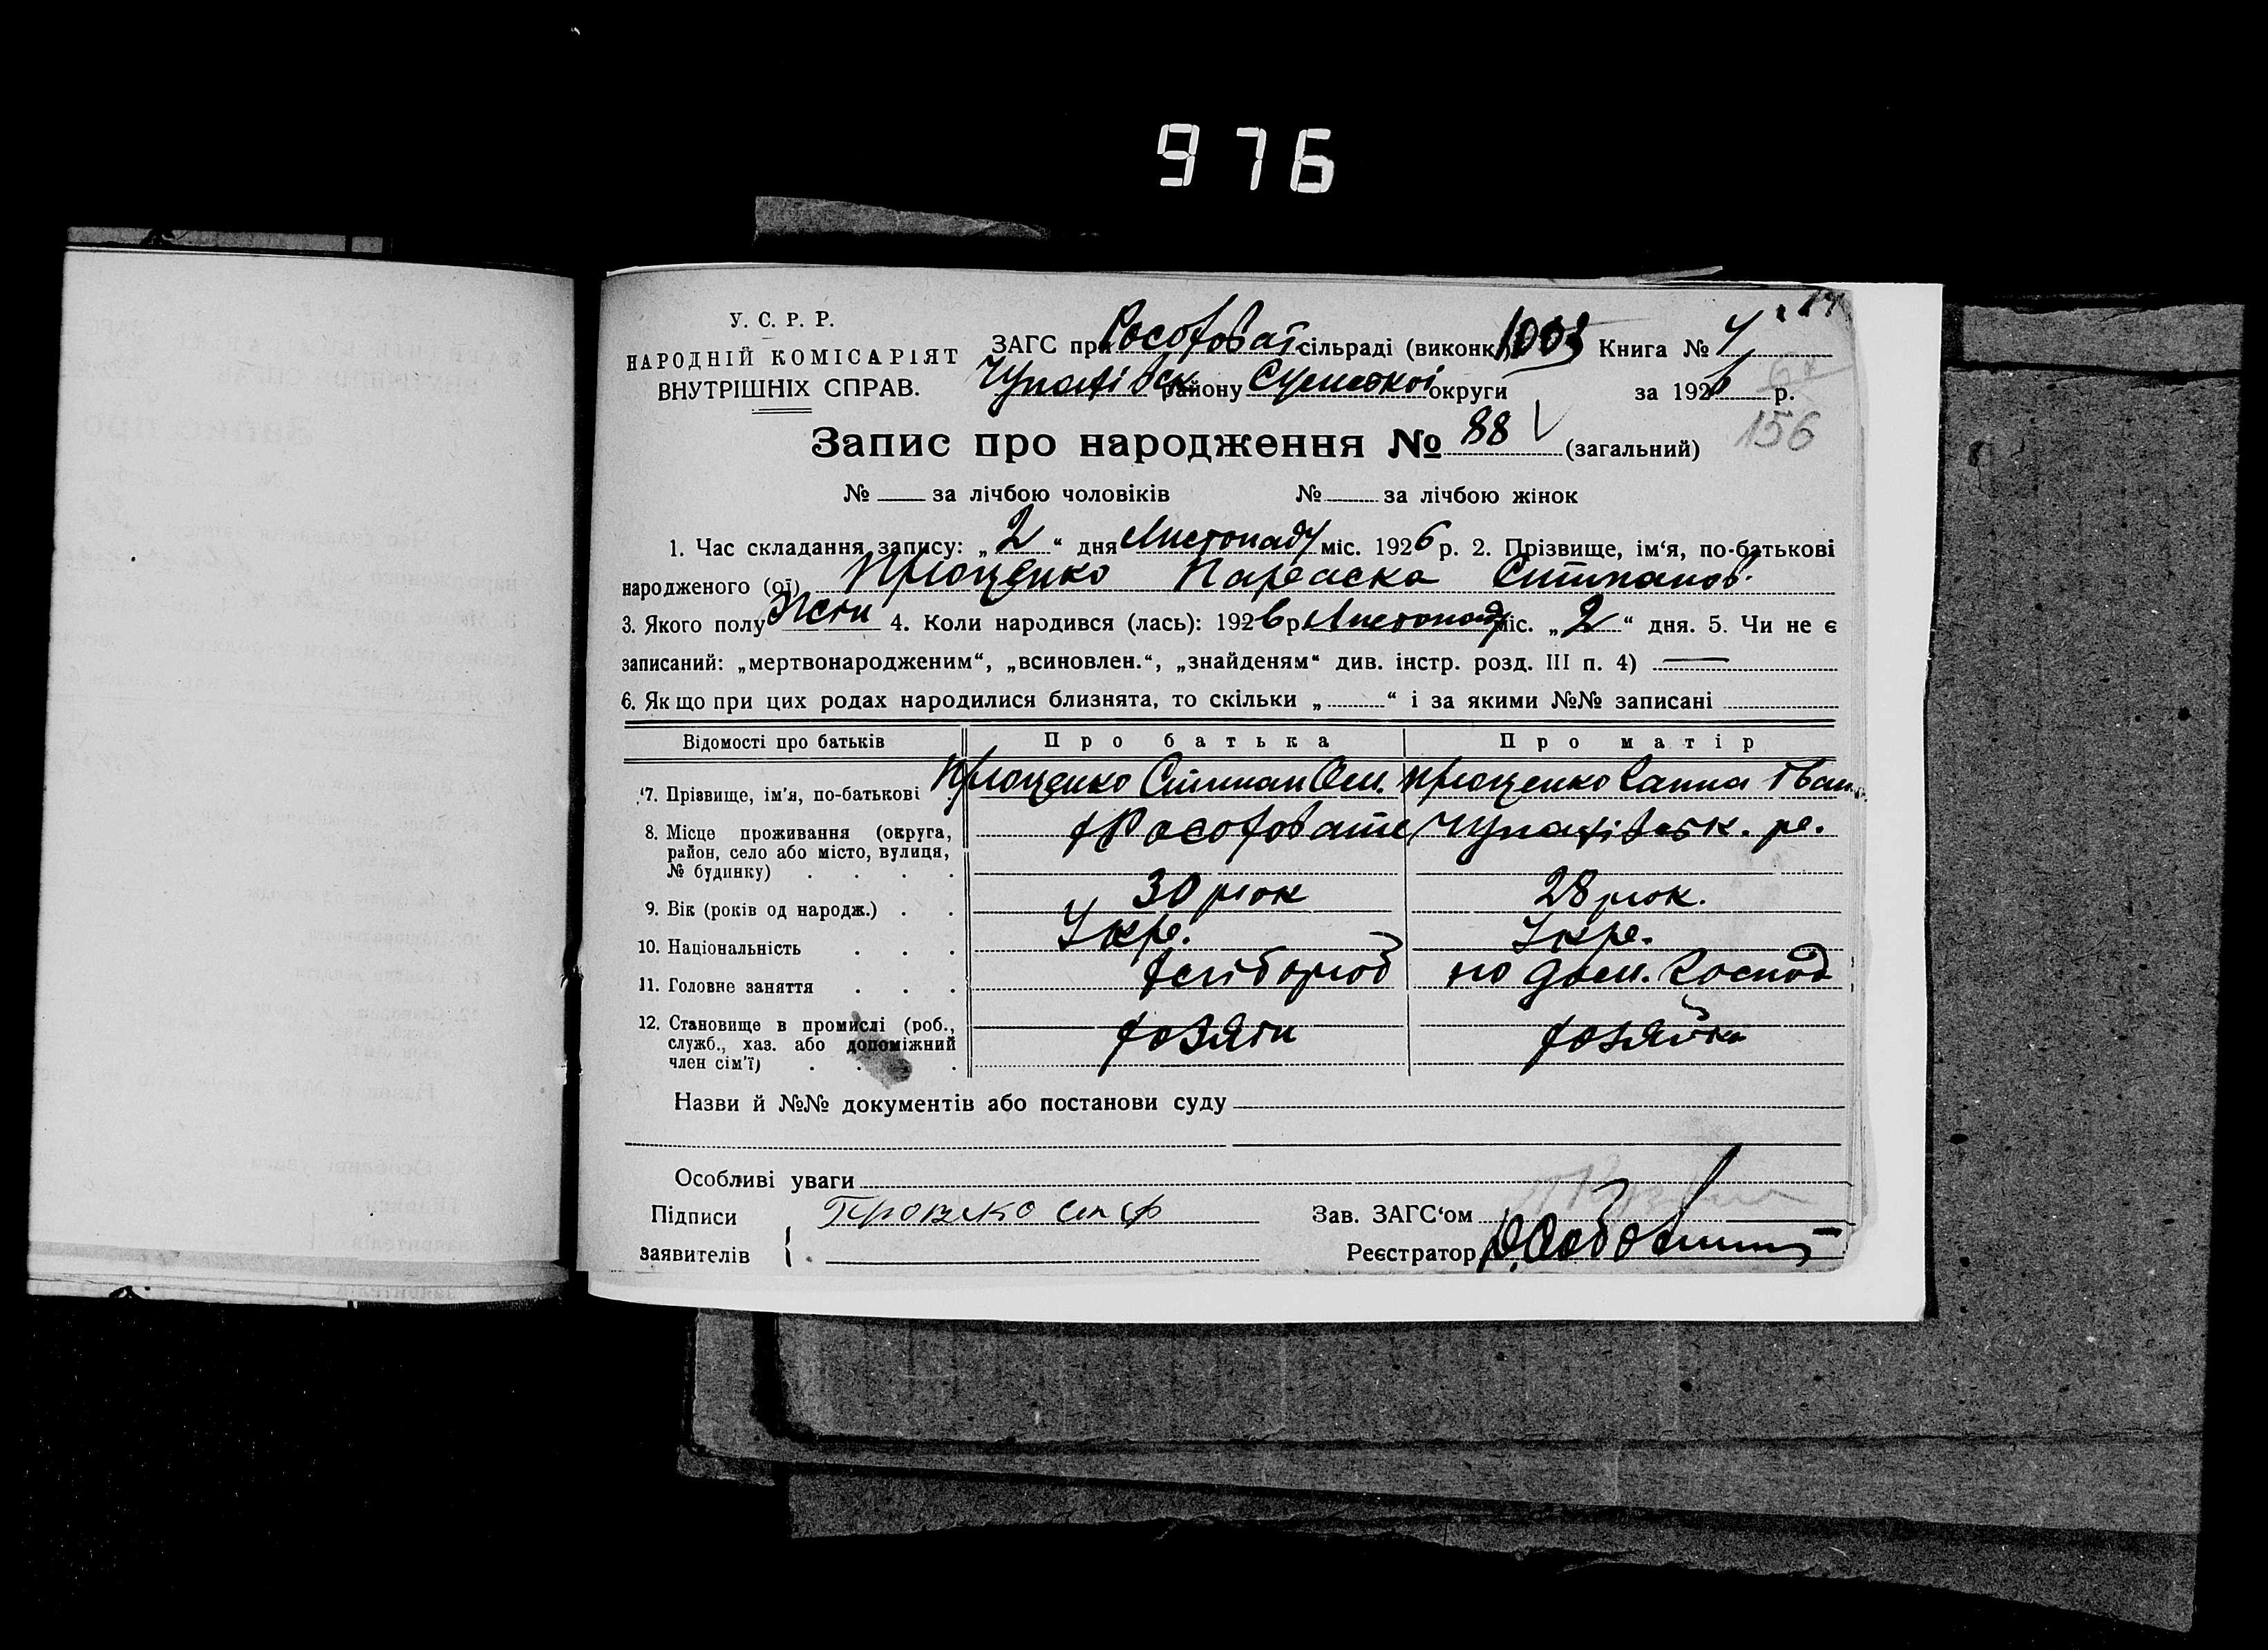 976
У. С. Р. Р.
НАРОДНІЙ КОМІСАРІЯТ
ВНУТРІШНІХ СПРАВ.
ЗАГС при сільраді (виконк.) 1003 Книга №
району Сумської округи за 1926 р.
156
Запис про народження № 88 (загальний)
№ за лічбою чоловіків № за лічбою жінок
1. Час складання запису: „2“ дня Листопаду міс. 1926 р. 2. Прізвище, ім‘я, по-батькові
народженого (ої) Проценко Параска Степанов.
3. Якого полу Жіти 4. Коли народився (лась): 1926 р. Листопаду міс. „2“ дня. 5. Чи не є
записаний: „мертвонародженим“, „всиновлен.“, „знайденям“ див. інстр. розд. III п. 4) —
6. Якщо при цих родах народилися близнята, то скільки „ “ і за якими №№ записані
Відомості про батьків Про батька Про матір
7. Прізвище, ім'я, по-батькові Проценко Степан Проценко Ганна Іван.
8. Місце проживання (округа,
район, село або місто, вулиця,
№ будинку)
9. Вік (років од народж.) 30 рок 28 рок.
10. Національність Укр. Укр.
11. Головне заняття хлібороб по дом. господ
12. Становище в промислі (роб.,
служб., хаз. або допоміжний
член сім'ї) хозяїн хозяйка
Назви й №№ документів або постанови суду
Особливі уваги
Підписи
заявителів
Зав. ЗАГС‘ом
Реєстратор